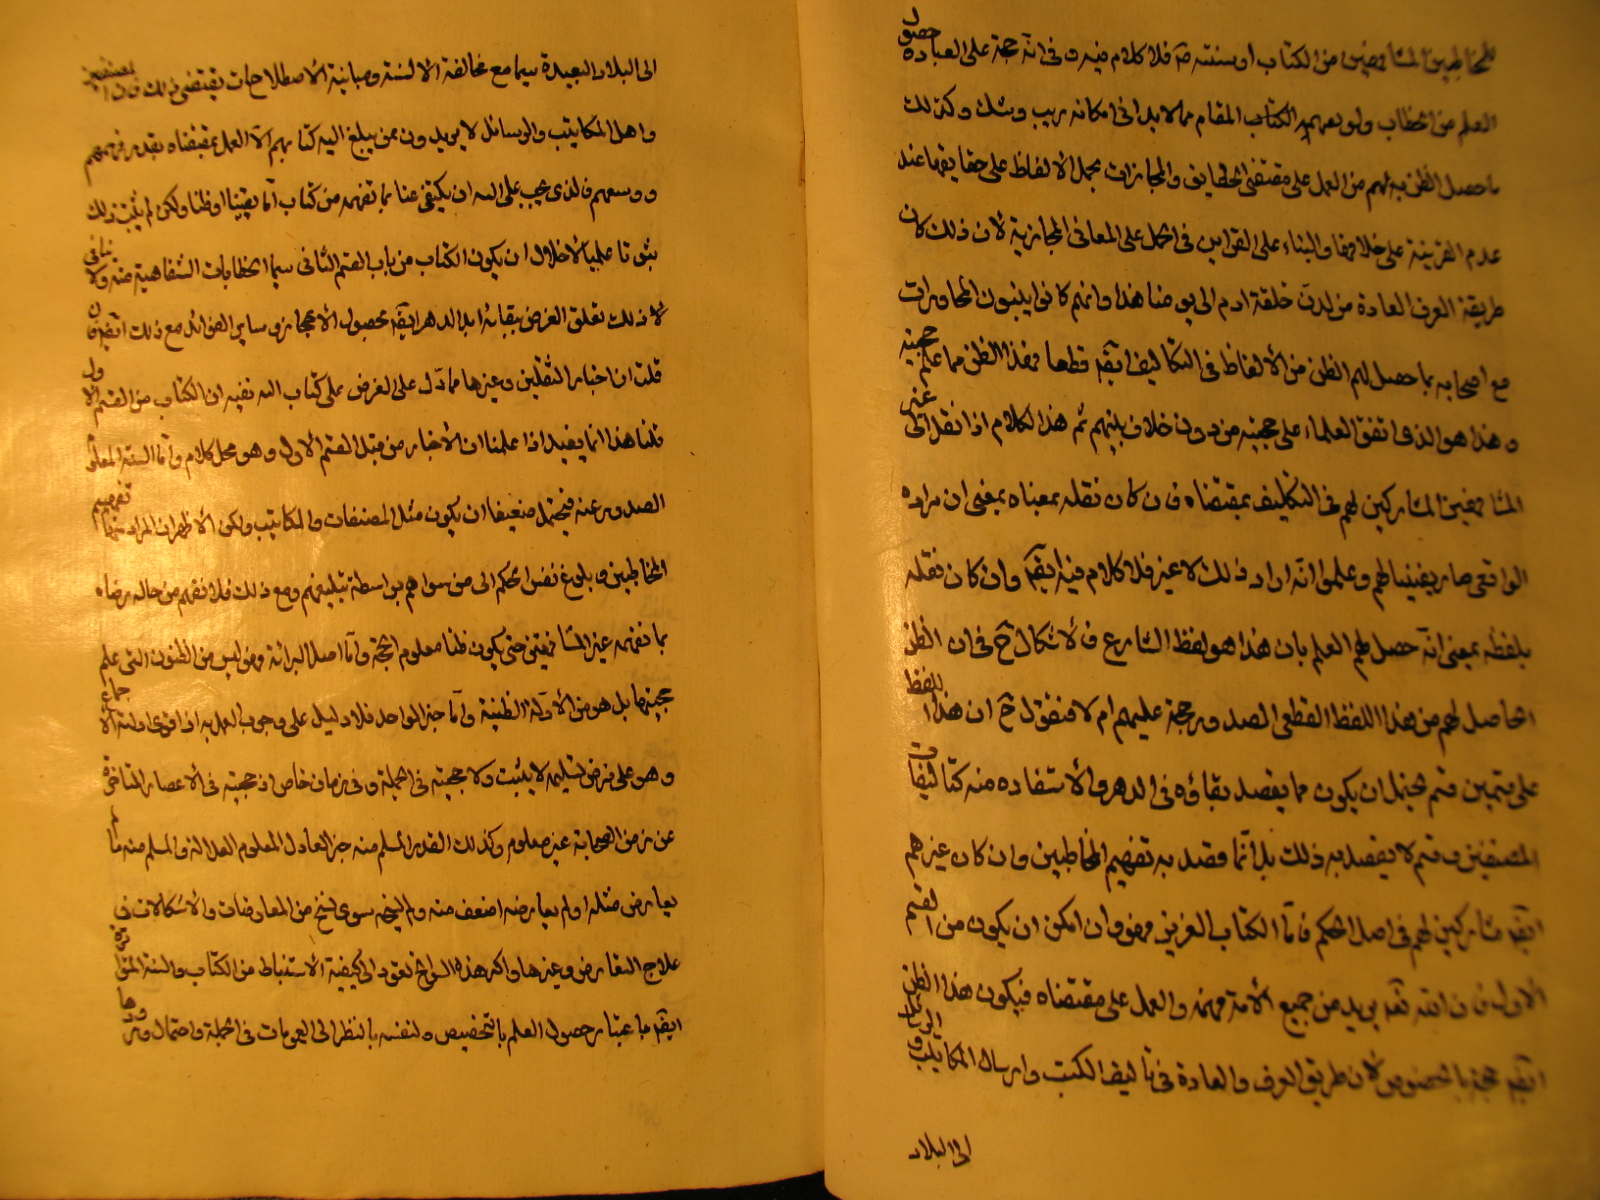 للمخاطبين المشافهين من الكتاب او سنته ص فلا كلام فيه و في انه حجة على العباده حصول
العلم من الخطاب ولو بعضهم الكتاب المقام مما لا يداني امكانه ريب وشك وكذلك
ما حصل الظن به لهم من العمل على مقتضى الحقايق والمجازات بحمل الالفاظ على حقايقها عند
عدم القرينة على خلافها والبناء على القراين في الحمل على المعاني المجازية لان ذلك كان
طريقة العرف والعادة من لدن خلقة ادم الى يومنا هذا وانهم كانوا يبنون المحاورات
مع اصحابه بما حصل لهم الظن من الالفاظ في التكاليف ايضا قطعا فهذا الظن مما علم حجيته
وهذا هو الذي اتفق العلماء على حجيته من دون خلاف بينهم ثم هذا الكلام اذا نقل الى غير
المشافهين المشاركين لهم في التكليف بمقتضاه فان كان نقله بمعناه بمعنى ان مراده
الواقعي صار يقينيا لهم وعلموا انه اراد ذلك لا غير فلا كلام فيه ايضا وان كان نقله
بلفظه بمعنى انه حصل لهم العلم بان هذا هو لفظ الشارع فالاشكال ح في ان الظن
الحاصل لهم من هذا اللفظ القطعي الصدور حجة عليهم ام لا فنقول ح ان هذا اللفظ
على قسمين قسم يحتمل ان يكون مما يقصد بقاؤه في الدهر والاستفاده منه كتاليفات
المصنفين وقسم لا يقصد به ذلك بل انما قصد به تفهيم المخاطبين وان كان غيرهم
ايضا مشاركين لهم في اصل الحكم فاما الكتاب العزيز فهو وان امكن ان يكون من القسم
الاول فان الله تعه يريد من جميع الامة فهمه والعمل على مقتضاه فيكون هذا الظن
ايضا حجة بالخصوص لان طريق العرف والعادة في تاليف الكتب وارسال المكاتيب والرسائل
الى البلاد
الى البلاد البعيدة سيما مع مخالفة الالسنة ومباينة الاصطلاحات يقتضي ذلك فان المصنفين
واهل المكاتيب والرسائل لا يريدون ممن يبلغ اليه كتابهم الا العمل بمقتضاه بقدر فهمهم
ووسعهم فالذي يجب على الله ان يكتفي عنا بما نفهمه من كتاب اما يقينا او ظنا ولكن لم يثبت ذلك
ثبوتا علميا لاحتمال ان يكون الكتاب من باب القسم الثاني سيما الخطابات الشفاهية منه ولا ينافي
لا ذلك تعلق الغرض ببقائه ابد الدهر ايضا بحصول الاعجاز و ساير الفوائد مع ذلك ايضا فان
قلت ان اخبار الثقلين وغيرها مما دل على العرض على كتاب الله تفيد ان الكتاب من القسم الاول
قلنا هذا انما يفيد اذا علمنا ان الاخبار من قبيل القسم الاول وهو محل كلام واما السنة المعلوم
الصدور عنه فيحتمل ضعيفا ان يكون مثل المصنفات والمكاتيب ولكن الاظهر ان المراد منها تفهيم
المخاطبين وبلوغ نفس الحكم الى من سواهم بواسطة تبليغهم ومع ذلك فلا نفهم من حاله رضاه
بما نفهمه غير المشافهين حتى يكون ظنا معلوم الحجة واما اصل البرائة فهو ليس من الظنون التي علم
حجيتها بل هو من الادلة الظنية واما خبر الواحد فلا دليل على وجوب العمل به اذ اقوى ادلته الاجماع
وهو على فرض تسليمه لا يثبت ولا حجيته في الجملة و في زمان خاص اذ حجيته في الاعصار المتاخرة
عن زمن الصحابة غير معلوم وكذلك القدر المسلم منه خبر العادل المعلوم العدالة والمسلم منه ما لم
يعارض مثله او لم يعارضه اضعف منه ولم ينجبر سوى انسخ من المعارضات والاشكالات في
علاج التعارض وغيرها واكثر هذه السوانح تعود الى كيفية الاستنباط من الكتاب والسنة المتواترة
ايضا باعتبار حصول العلم بالتخصيص ولنفسه بالنظر الى العمومات في الجملة واحتمال ورودها